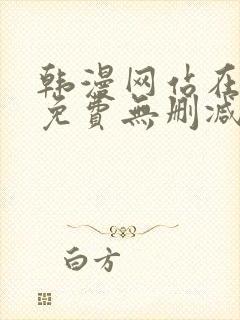 韩漫网站在
免費無删减
白方